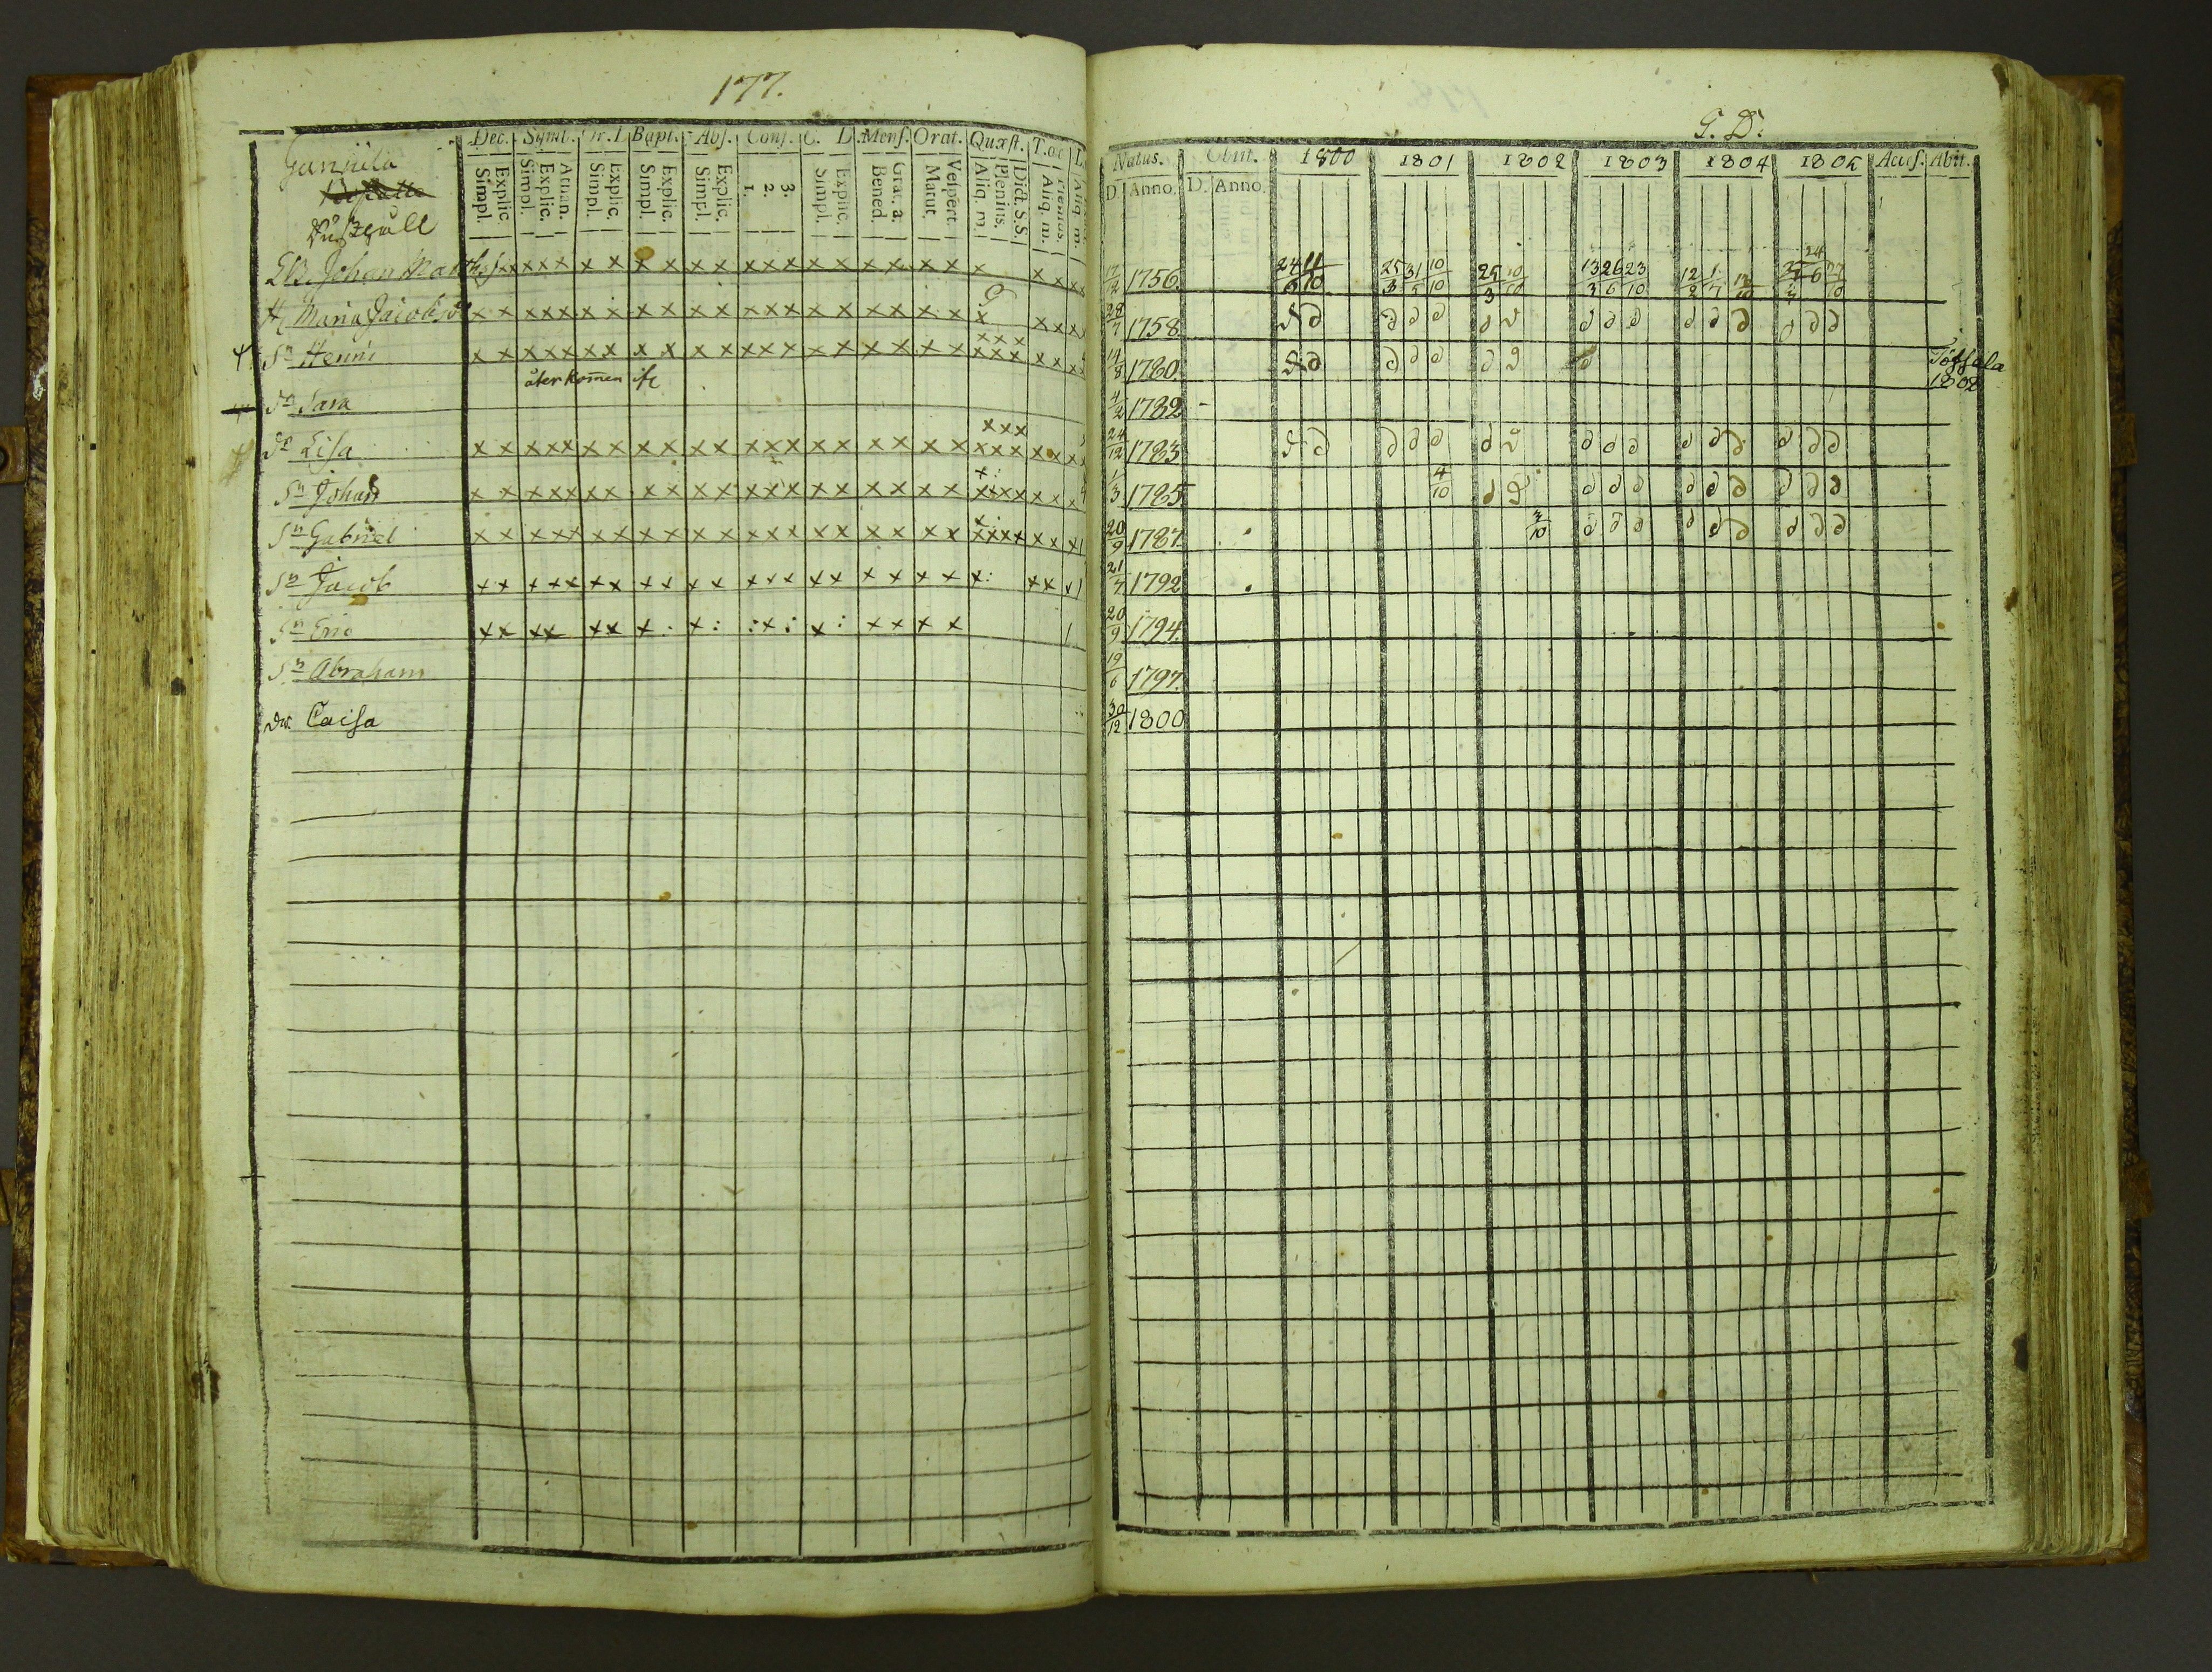 177.
G. D.
Dec. Symb. Or. D Bapt. Abs. Conf. C. D. Mens. Orat. Quæst. T. œc L.
Explic. Simpl. Athan. Explic. Simpl. Explic. Simpl. Explic. Simpl. Explic. Simpl. 3. 2. 1. Explic. Simpl. Grat. a. Bened. Vespert. Matut. Dict. S. S. Plenius. Aliq. m. Plenius. Aliq. m. Aliq. m.
Natus. Obiit. 1800 1801 1802 1803 1804 1805 Acces. Abit.
D. Anno. D. Anno.
Johan Matths x x x x x x x x x x x x x x x x x x x x x x x 17/12 1756. 24/6 11/10 25/3 31/5 10/10 25/3 10/10 13/3 26/6 23/10 12/2 1/7
H. Maria Jacobsdr x x x x x x x x x x x x x x x x x x x x x x x 28/7 1758. d d d d d d d d d d d d d d d
Sn Henric x x x x x x x x x x x x x x x x x x x x x x x x x 14/8 1780. d d d d d d d Töfsala
1802
återkommen
Dr Sara 4/2 1782
Dr Lisa x x x x x x x x x x x x x x x x x x x x x x x x x 24/12 1783 d d d d d d d d d d d d d d d
Sn Johan x x x x x x x x x x x x x x x x x x x x x x x x 1/3 1785. 4/10 d d d d d d d d d d d
Sn Gabriel x x x x x x x x x x x x x x x x x x x x x x x x 20/9 1787. 3/10 d d d d d d d d d
Sn Jacob x x x x x x x x x x x x x x x x x x x x x: x x x 21/7 1792
Sn Eric x x x x x x x : x : : x : x : x x x x 20/9 1794.
Sn Abraham 19/6 1797.
Dr. Caisa 30/12 1800